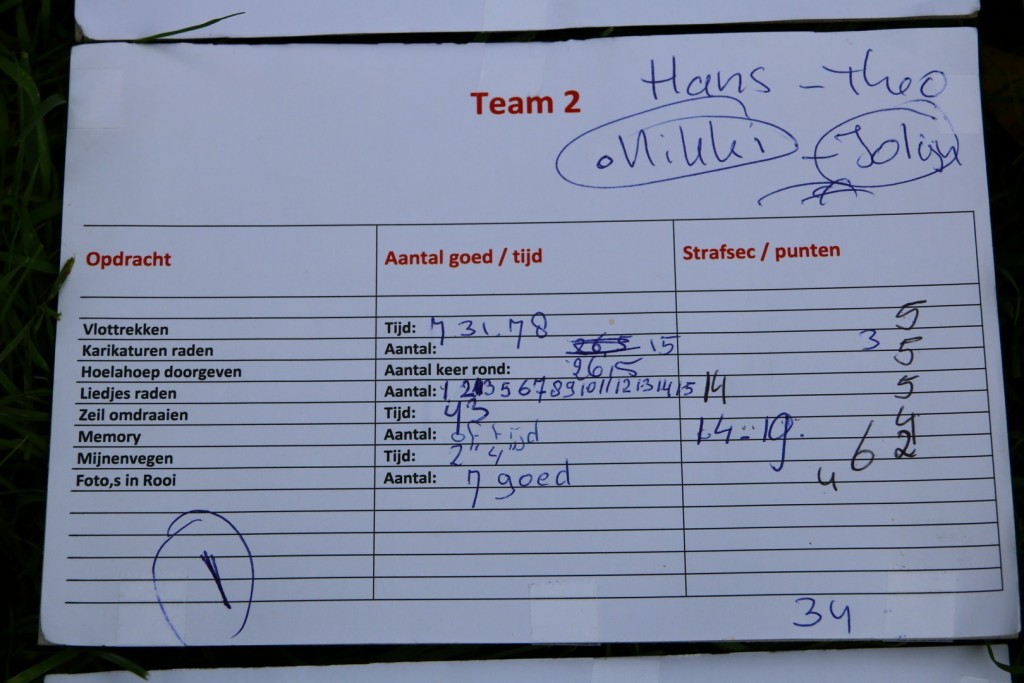 Hans - Theo
Team 2
Nikki -
Opdracht Aantal goed / tijd Strafsec / punten
Vlottrekken Tijd: 7 31.78 5
Karikaturen raden Aantal: 15 3
Hoelahoep doorgeven Aantal keer rond: 26,5 5
Liedjes raden Aantal: 1 2 3 5 6 7 8 9 10 11 12 13 14 15 14 5
Zeil omdraaien Tijd: 43 4
Memory Aantal: of tijd 1.4 19. 6 2
Mijnenvegen Tijd: 2" 4"
Foto,s in Rooi Aantal: 7 goed 4
1
34